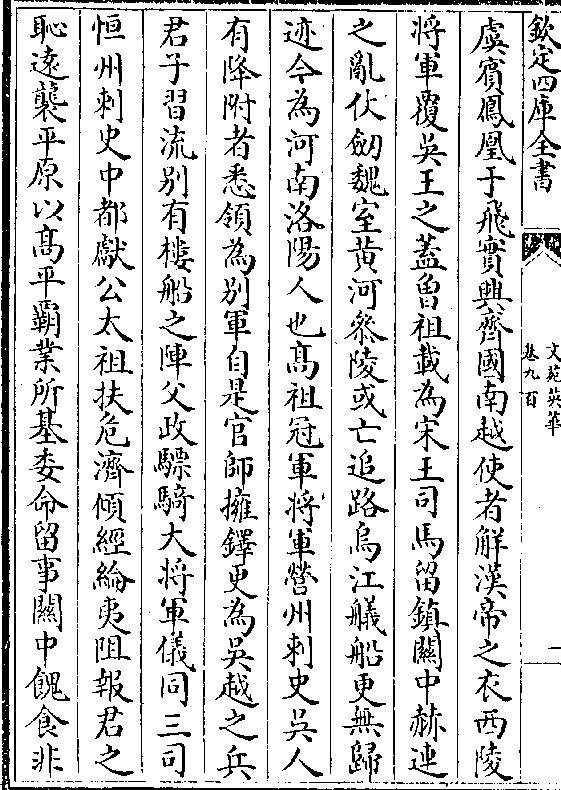 欽定四庫全書
文苑英華
卷九百
一
虞賓鳳凰于飛實興齊國南越使者解漢帝之衣西陵
將軍覆吳王之蓋曾祖載為宋王司馬留鎮關中赫連
之亂仗劒魏室黄河叅陵或亡追路烏江艤船更無歸
迹今為河南洛陽人也髙祖冠軍將軍營州刺史吳人
有降附者悉領為别軍自是官師擁鐸更為吳越之兵
君子習流别有樓船之陣父政驃騎大將軍儀同三司
恒州刺史中都獻公太祖扶危濟傾經綸夷阻報君之
恥逺襲平原以髙平覇業所基委命留事關中餽食非